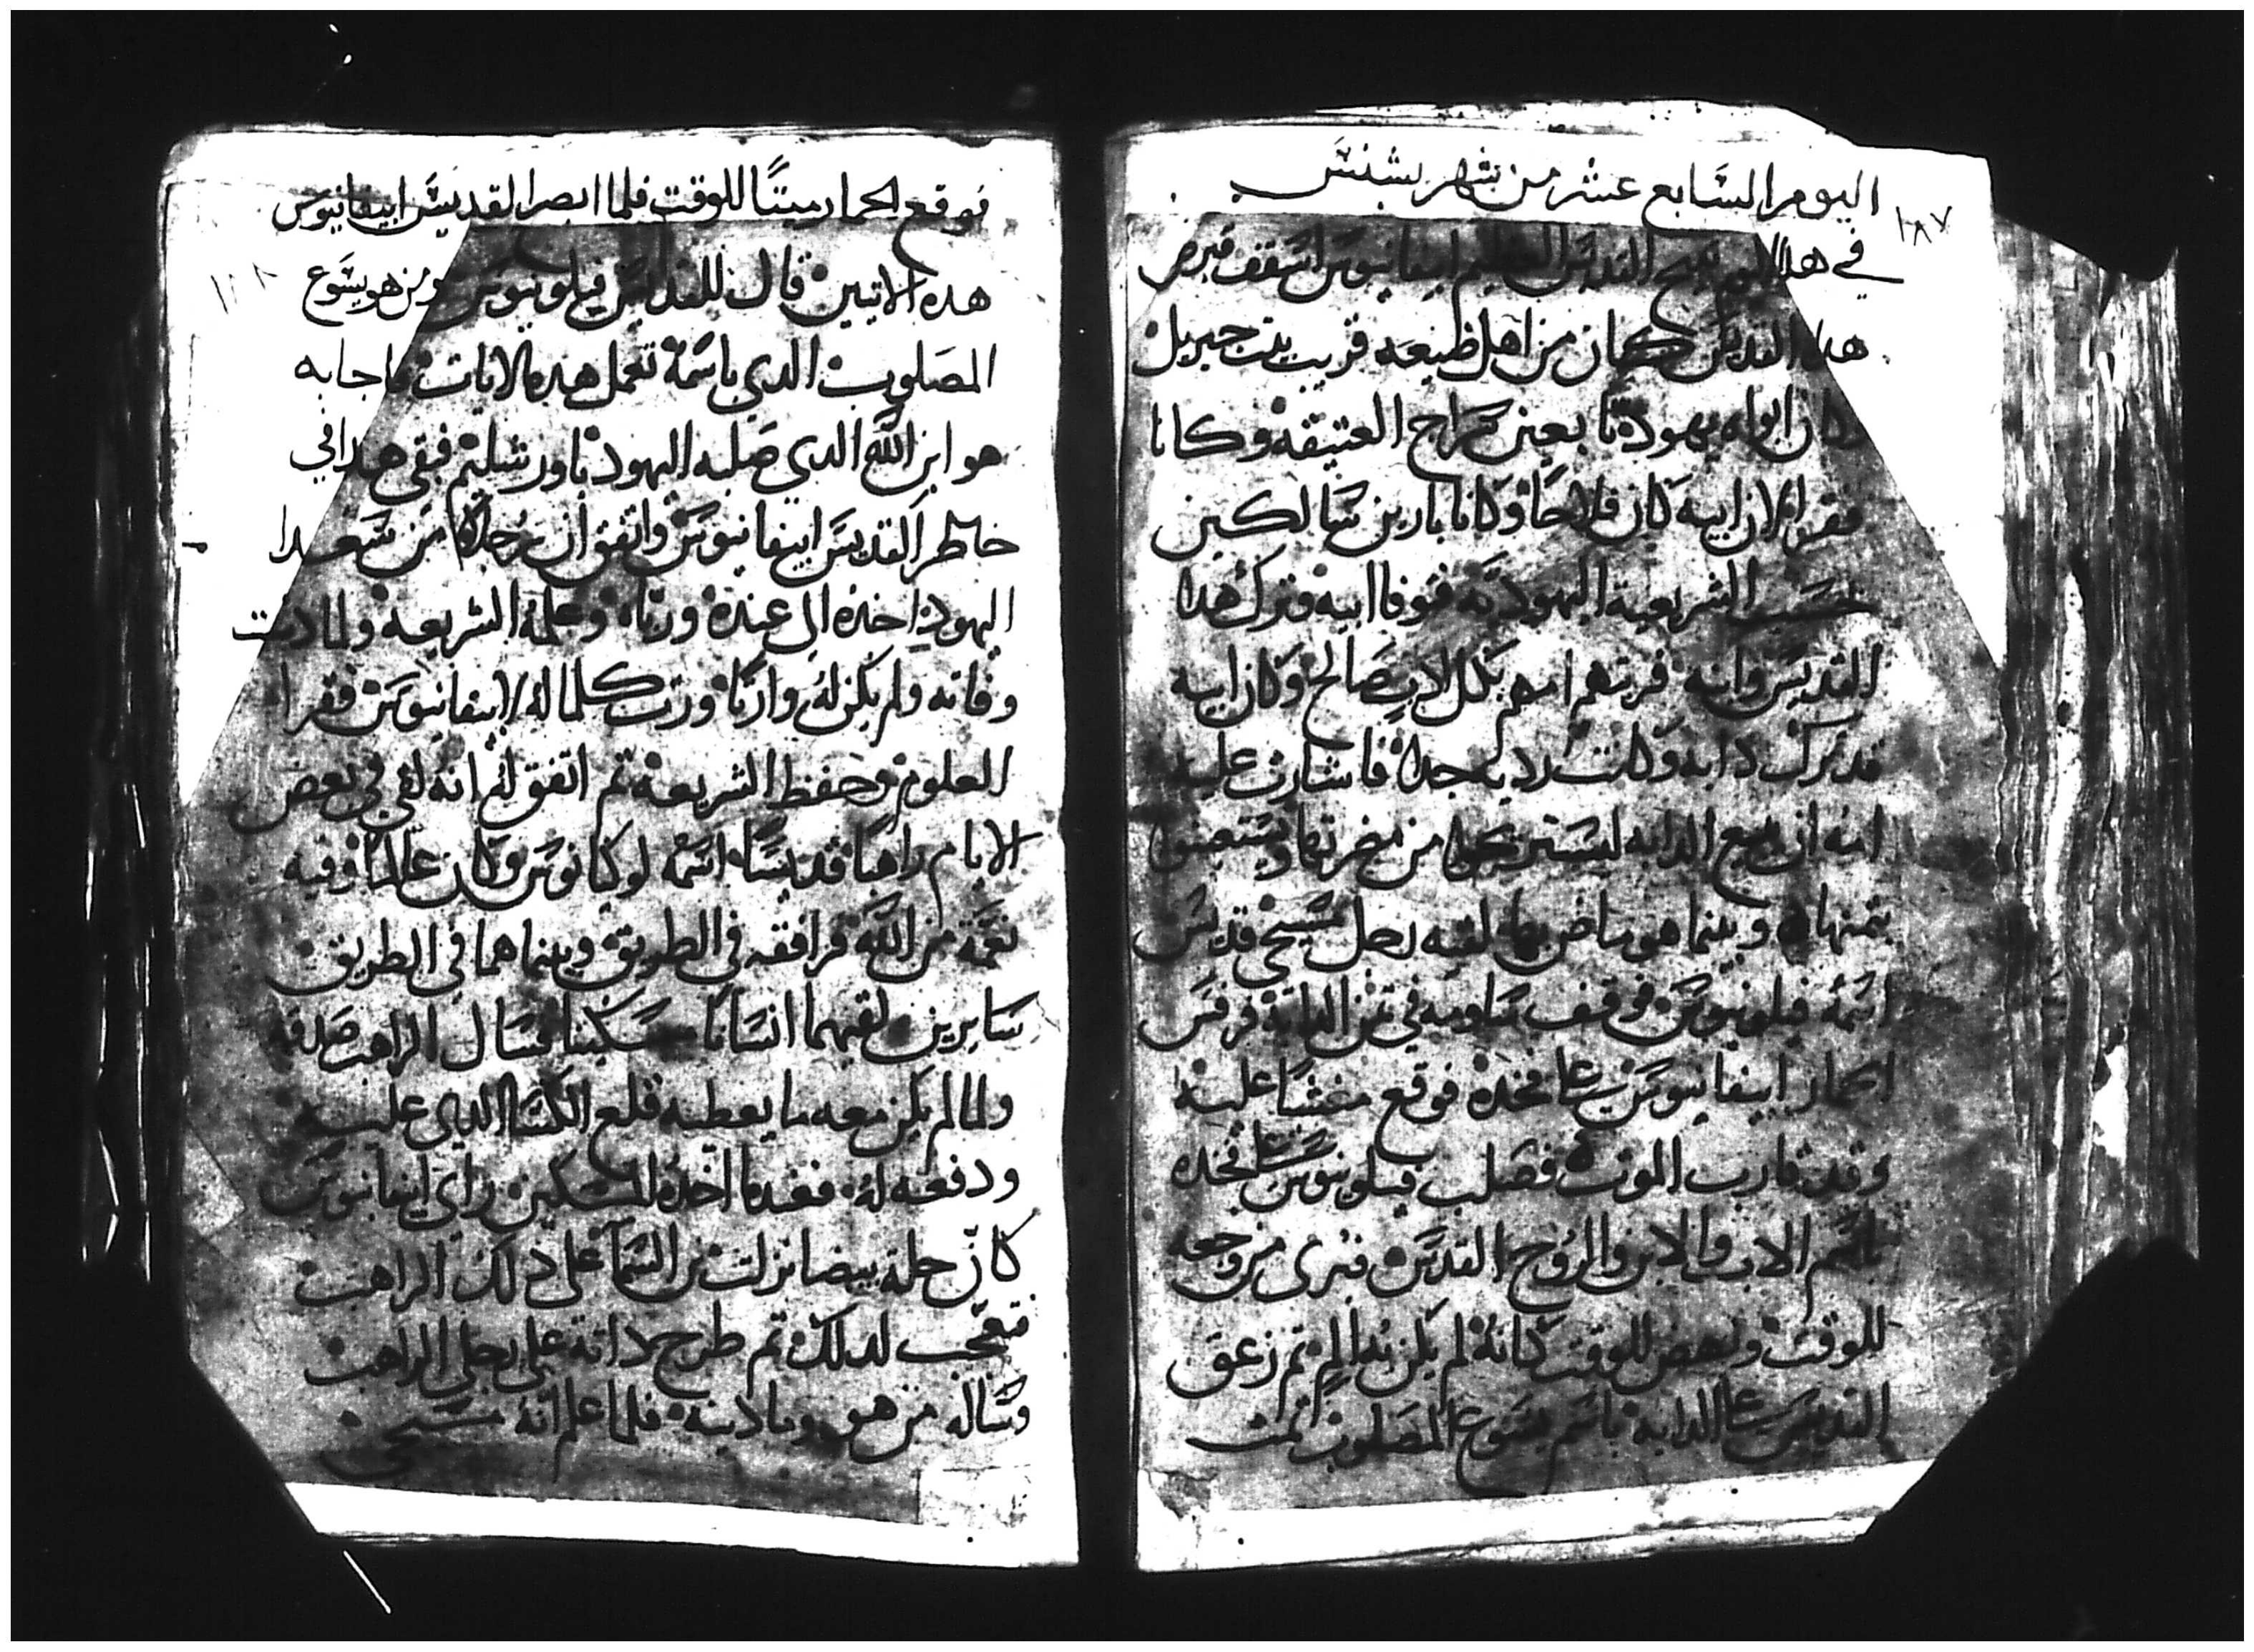 اليوم السابع عشر من شهر بشنس
١٨٧
في هذا اليوم تنيح القديس العظيم ابيفانيوس اسقف قبرص
هذا القديس كان من اهل ضيعه قريب بيت جبريل
وكان ابواه يهوديا بعين سراح العتيقه وكانا
فقرا لان ابيه كان فلاحا وكانا بارين سالكين
حسب الشريعة اليهوديه فتوفا ابيه وترك هذا
القديس وابنه فربتهم امهم بكل ادب صالح وكان ابيه
قد ترك دابه وكانت رديه جدا فاشارت عليه
امه ان يبيع الدابه ليستريحوا من مضرتها ويستعينوا
بثمنها وبينما هو ماض بها لقيه رجل مسيحي قديس
اسمه فيلوتيوس فوقف يساومه في ثمن الدابة فرفس
الحمار ابيفانيوس على فخده فوقع مغشيا عليه
وقد قارب الموت فصلب فيلوتيوس على فخده
باسم الاب والابن والروح القدس فبرى من وجعه
للوقت ونهض للوقت كانه لم يكن به الم ثم زعق
القديس على الدابة باسم يسوع المصلوب تمت
فوقع الحمار ميتا للوقت فلما ابصر القديس ابيفانيوس
هذه الايتين قال للقديس فيلوتيوس ومن هو يسوع
المصلوب الدي باسمه تعمل هده الايات فاجابه
هو ابن الله الدي صلبه اليهود باورشليم فبقى هدا في
خاطر القديس ابيفانيوس واتفق ان رجلا من سعدا
اليهود اخده الى عنده ورباه وعلمه الشريعة ولما دنت
وفاته ولم يكن له وارثا ورث كلما له لابيفانيوس فقرا
العلوم وحفظ الشريعة ثم اتفق له انه لقي في بعض
الايام راهبا قديسا اسمه لوكيانوس وكان عالما وفيه
نعمة من الله فرافقه في الطريق وبينما هما في الطريق
سايرين لقيهما انسانا مسكينا فسال الراهب صدقه
ولما لم يكن معه ما يعطيه قلع الكسا الدي عليه
ودفعه له فعندما اخده المسكين راى ابيفانيوس
كان حلة بيضا نزلت من السما على دلك الراهب
فتعجب لدلك ثم طرح داته على رجلي الراهب
وساله من هو وما دينه فلما علم انه مسيحي